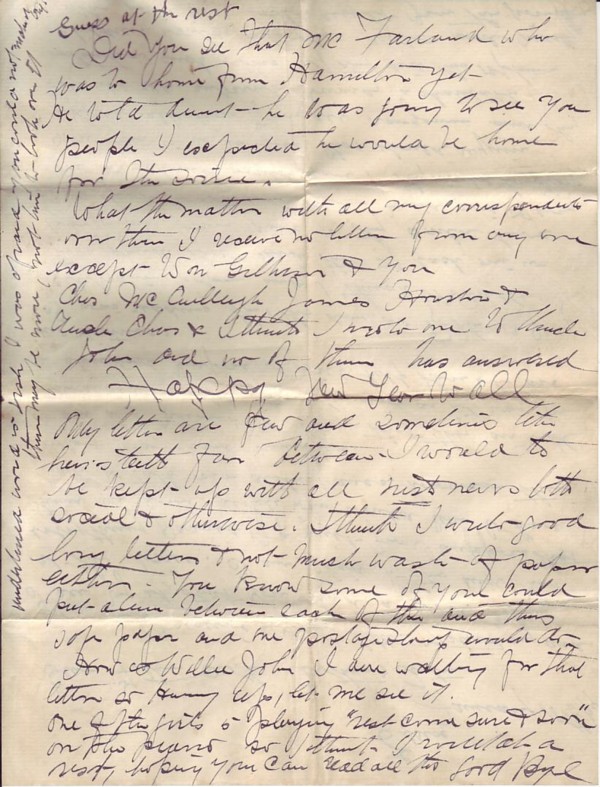 Guess at the rest
Did you see that Mc Farland who
was to home from Hamilton yet
He told Aunt he was going to see you
people I expected he would be home
for the
What the matter with all my correspondents
now then I receive no letters from any one
except Wm & you
Chas McCullough James Houston &
Uncle Chas & I think I wrote one to Uncle
John and no of them has answered
Happy New Year to all
My letter are few and sometimes
far between I would to
be kept up with all news both
social & otherwise. I think I write good
long letters & not much waste of paper
either. You know some of you could
put a line between each of this and thus
paper and one postage stamp would do
How is Willie John I am waiting for that
letter so hurry up, let me see it.
One of the girls is playing "rest come sure & soon"
on the piano so I think I will take a
rest, hoping you can read all this Good Bye
underlined word is I was afraid you could not make it
there may be more,